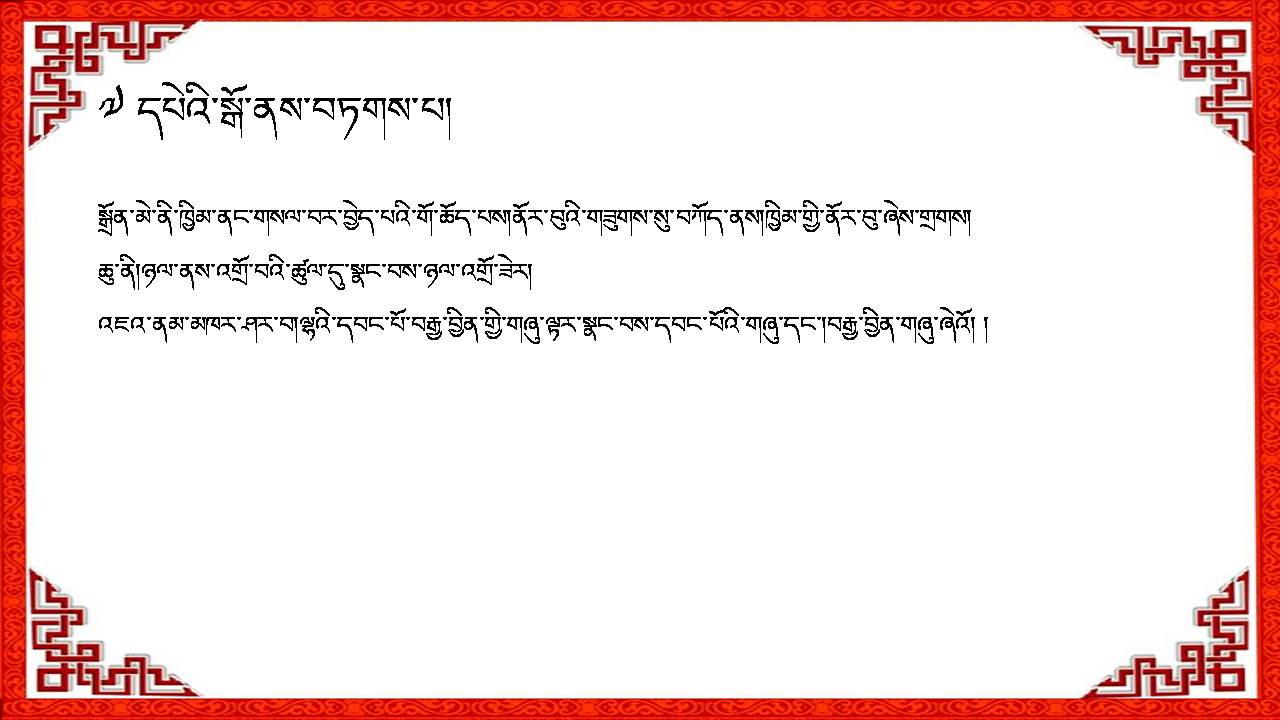 ༧ དཔེའི་སྒོ་ནས་བཏགས་པ།
སྒྲོན་མེ་ནི་ཁྱིམ་ནང་གསལ་བར་བྱེད་པའི་གོ་ཆོད་པས།ནོར་བུའི་གཟུགས་སུ་བཀོད་ནས།ཁྱིམ་གྱི་ནོར་བུ་ཞེས་གྲགས།
ཆུ་ནི།ཉལ་ནས་འགྲོ་བའི་ཚུལ་དུ་སྣང་བས་ཉལ་འགྲོ་ཟེར།
འཇའ་ནམ་མཁར་ཤར་བ།ལྷའི་དབང་པོ་བརྒྱ་བྱིན་གྱི་གཞུ་ལྟར་སྣང་བས་དབང་པོའི་གཞུ་དང་།བརྒྱ་བྱིན་གཞུ་ཞེའོ། །